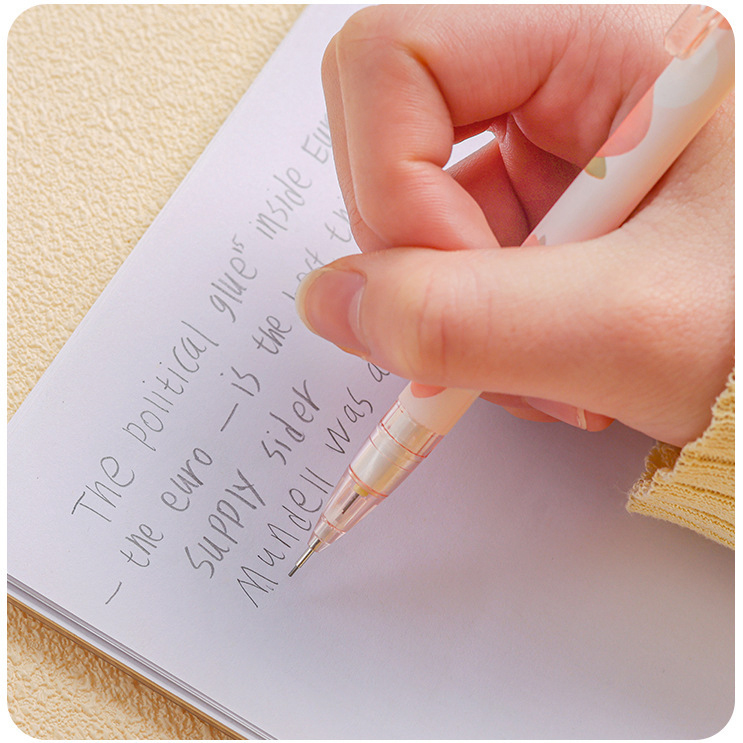 The political glue is inside
— the euro — is the
supply sider
Mundell was